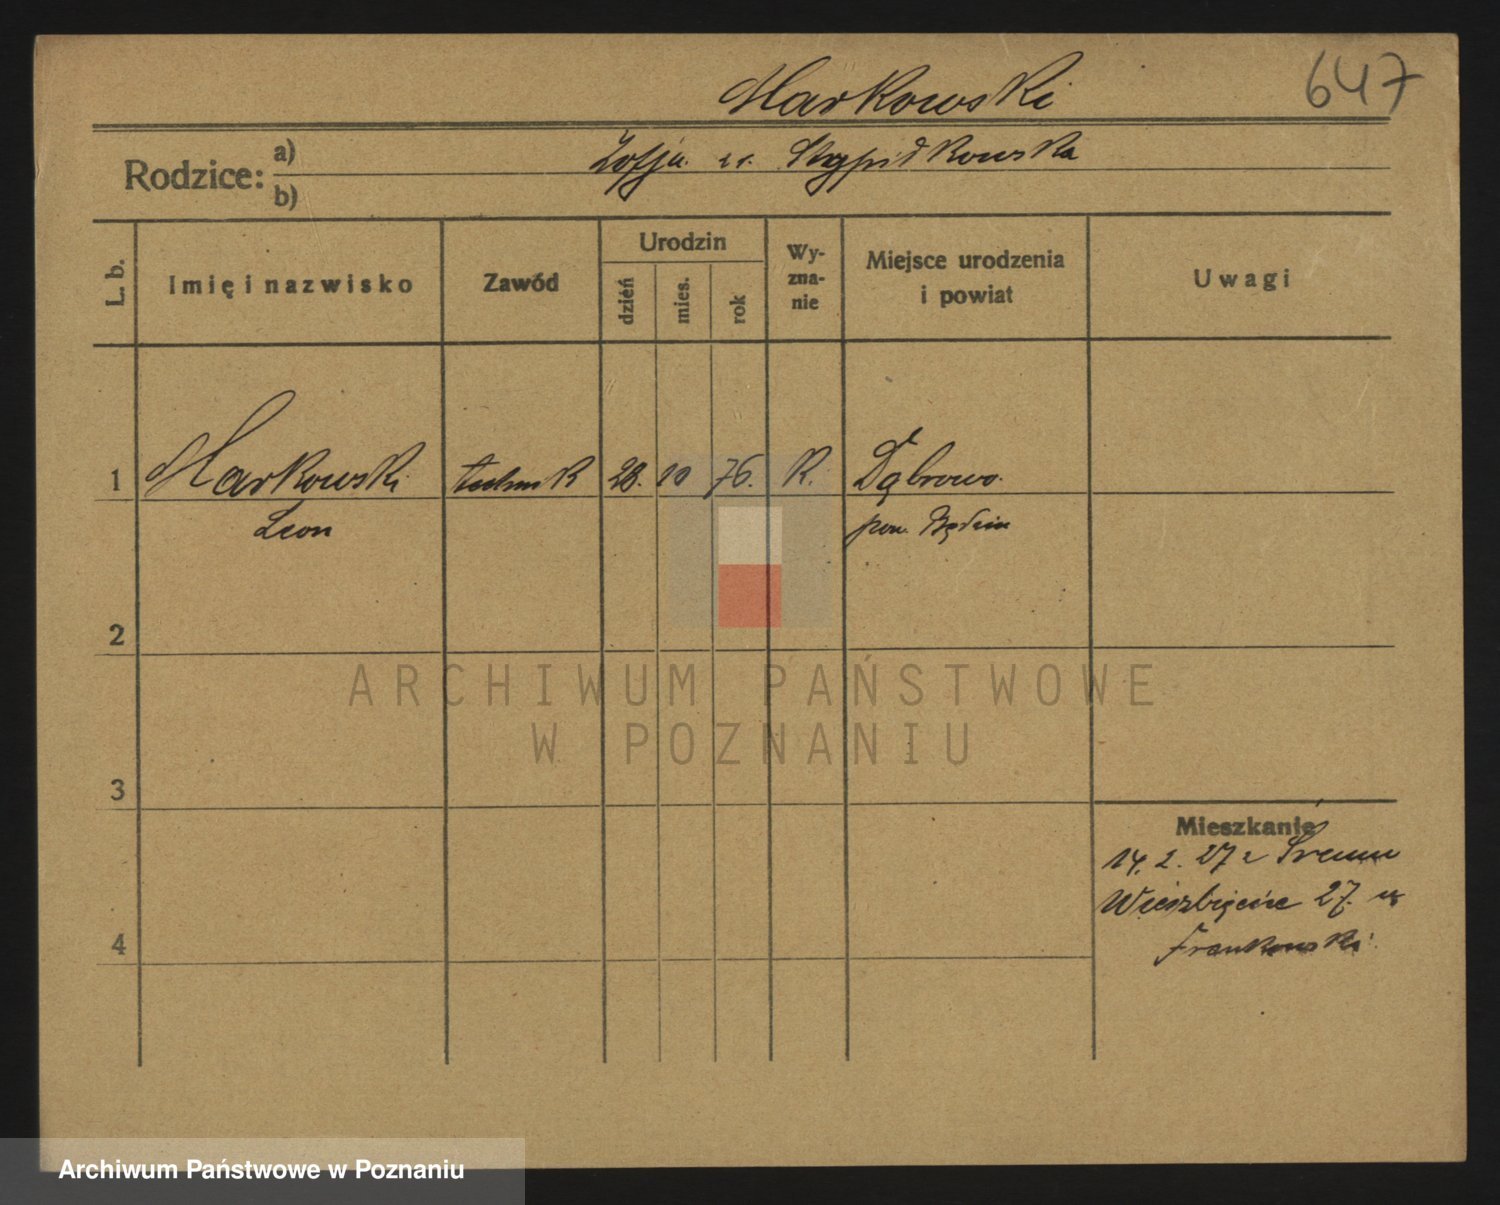 647
Markowski
Rodzice:
a)
Zofja z. Stypidkowska
b)
L. b.
Imię i nazwisko
Zawód
Urodzin
dzień
mies.
rok
Wy-
zna-
nie
Miejsce urodzenia
i powiat
Uwagi
1
Markowski technik 28. 10 76. R. Dąbrowa
Leon pow. Będzin
2
ARCHIWUM PAŃSTWOWE
W POZNANIU
3
Mieszkanie
14. 2. 27 z Śremu
Wierzbięcice 27.
Frankowski
4
Archiwum Państwowe w Poznaniu